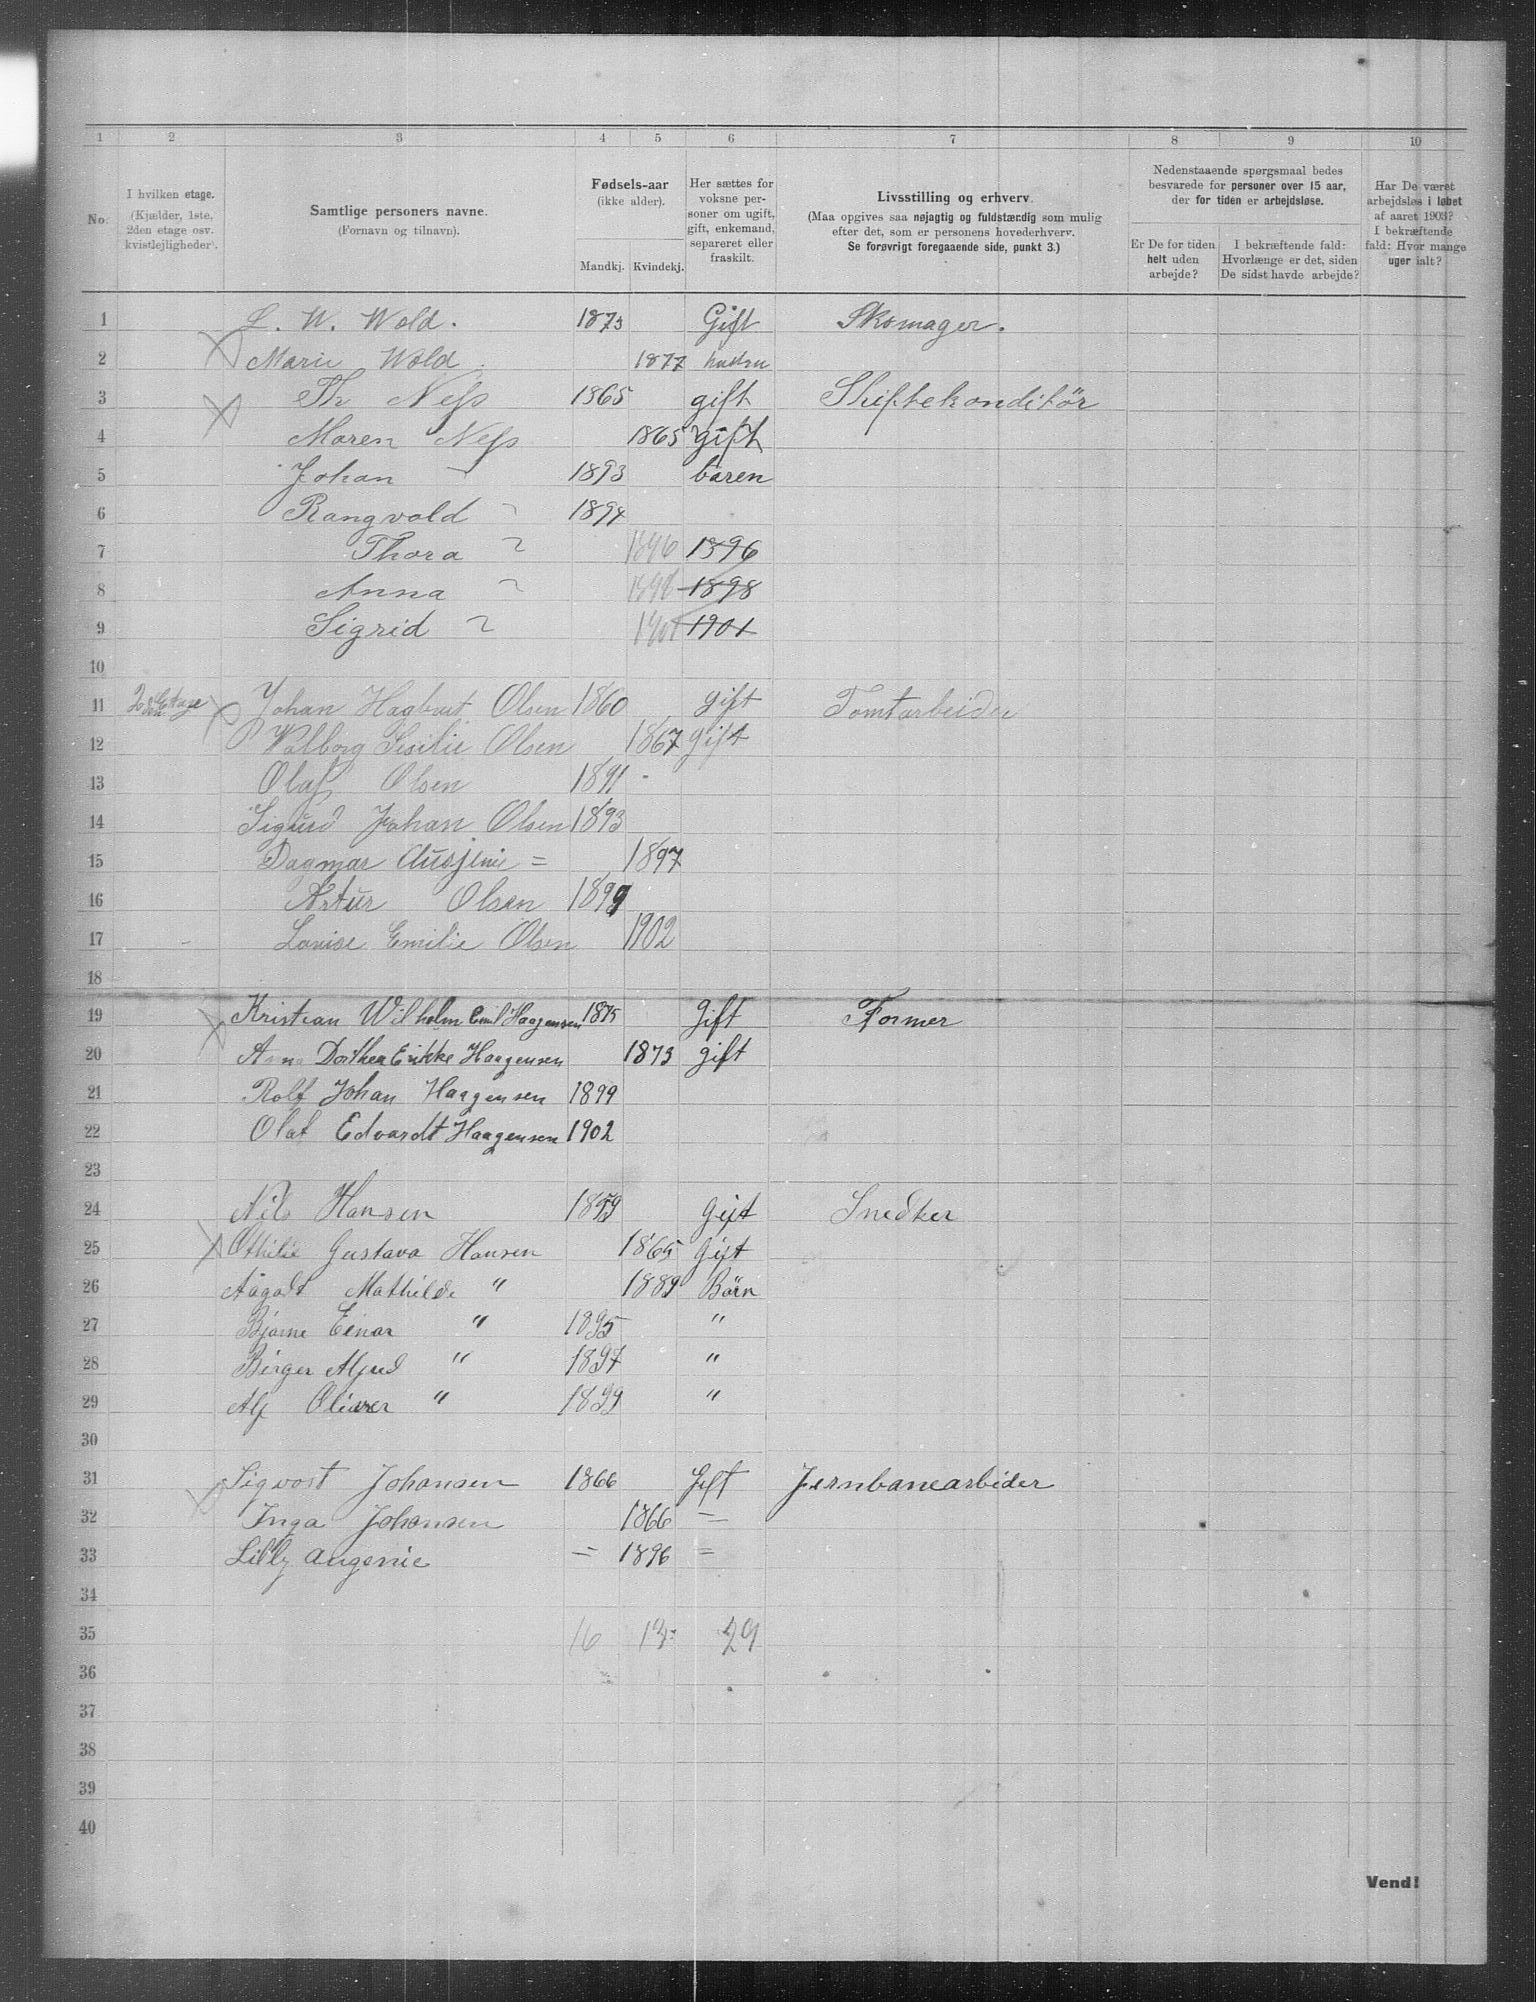 1 2 3 4 5 6 7 8 9 10
No.
I hvilken etage.
(Kjælder, 1ste,
2den etage osv.
kvistlejligheder).
Samtlige personers navne.
(Fornavn og tilnavn).
Fødsels-aar
(ikke alder).
Mandkj. Kvindekj.
Her sættes for
voksne per-
soner om ugift,
gift, enkemand,
separeret eller
fraskilt.
Livsstilling og erhverv.
(Maa opgives saa nøjagtig og fuldstændig som mulig
efter det, som er personens hovederhverv.
Se forøvrigt foregaaende side, punkt 3.)
Nedenstaaende spørgsmaal bedes
besvarede for personer over 15 aar,
der for tiden er arbejdsløse.
Er De for tiden
helt uden
arbejde?
I bekræftende fald:
Hvorlænge er det, siden
De sidst havde arbejde?
Har De været
arbejdsløs i løbet
af aaret 1903?
I bekræftende
fald: Hvor mange
uger ialt?
1 L. W. Wold. 1873 Gift Skomager.
2 Marie Wold 1877
3 Th Ness 1865 gift Skiftekonditör
4 Maren Ness 1865 gift
5 Johan 1893 baren
6 Rangvold " 1894
7 Thora " 1896 1896
8 Anna " 1898 1898
9 Sigrid " 1901 1901
10
11 2den Etage Johan Hagbart Olsen 1860 gift Tomtarbeider
12 Valborg Sisilie Olsen 1867 gift
13 Olaf Olsen 1891 -
14 Sigurd Johan Olsen 1893
15 Dagmar = 1897
16 Artur Olsen 1899
17 Lovise Emilie Olsen 1902
18
19 Kristian Wilhelm Emil Haagensen 1875 Gift Former
20 Anna Dorthea Erikke Haagensen 1873 gift
21 Rolf Johan Haagensen 1899
22 Olaf Edvardt Haagensen 1902
23
24 Nils Hansen 1859 Gift Snedker
25 Othilie Gustava Hansen 1865 Gift
26 Aagodt Mathilde " 1889 Börn
27 Bjarne Einar " 1895 "
28 Birger Alfred " 1897 "
29 Alf Oliver " 1899 "
30
31 Sigvart Johansen 1866 Gift Jernbanearbider
32 Inga Johansen 1866 =
33 Lilly Angenie = 1896 =
34
35 16 13 29
36
37
38
39
40
Vend!